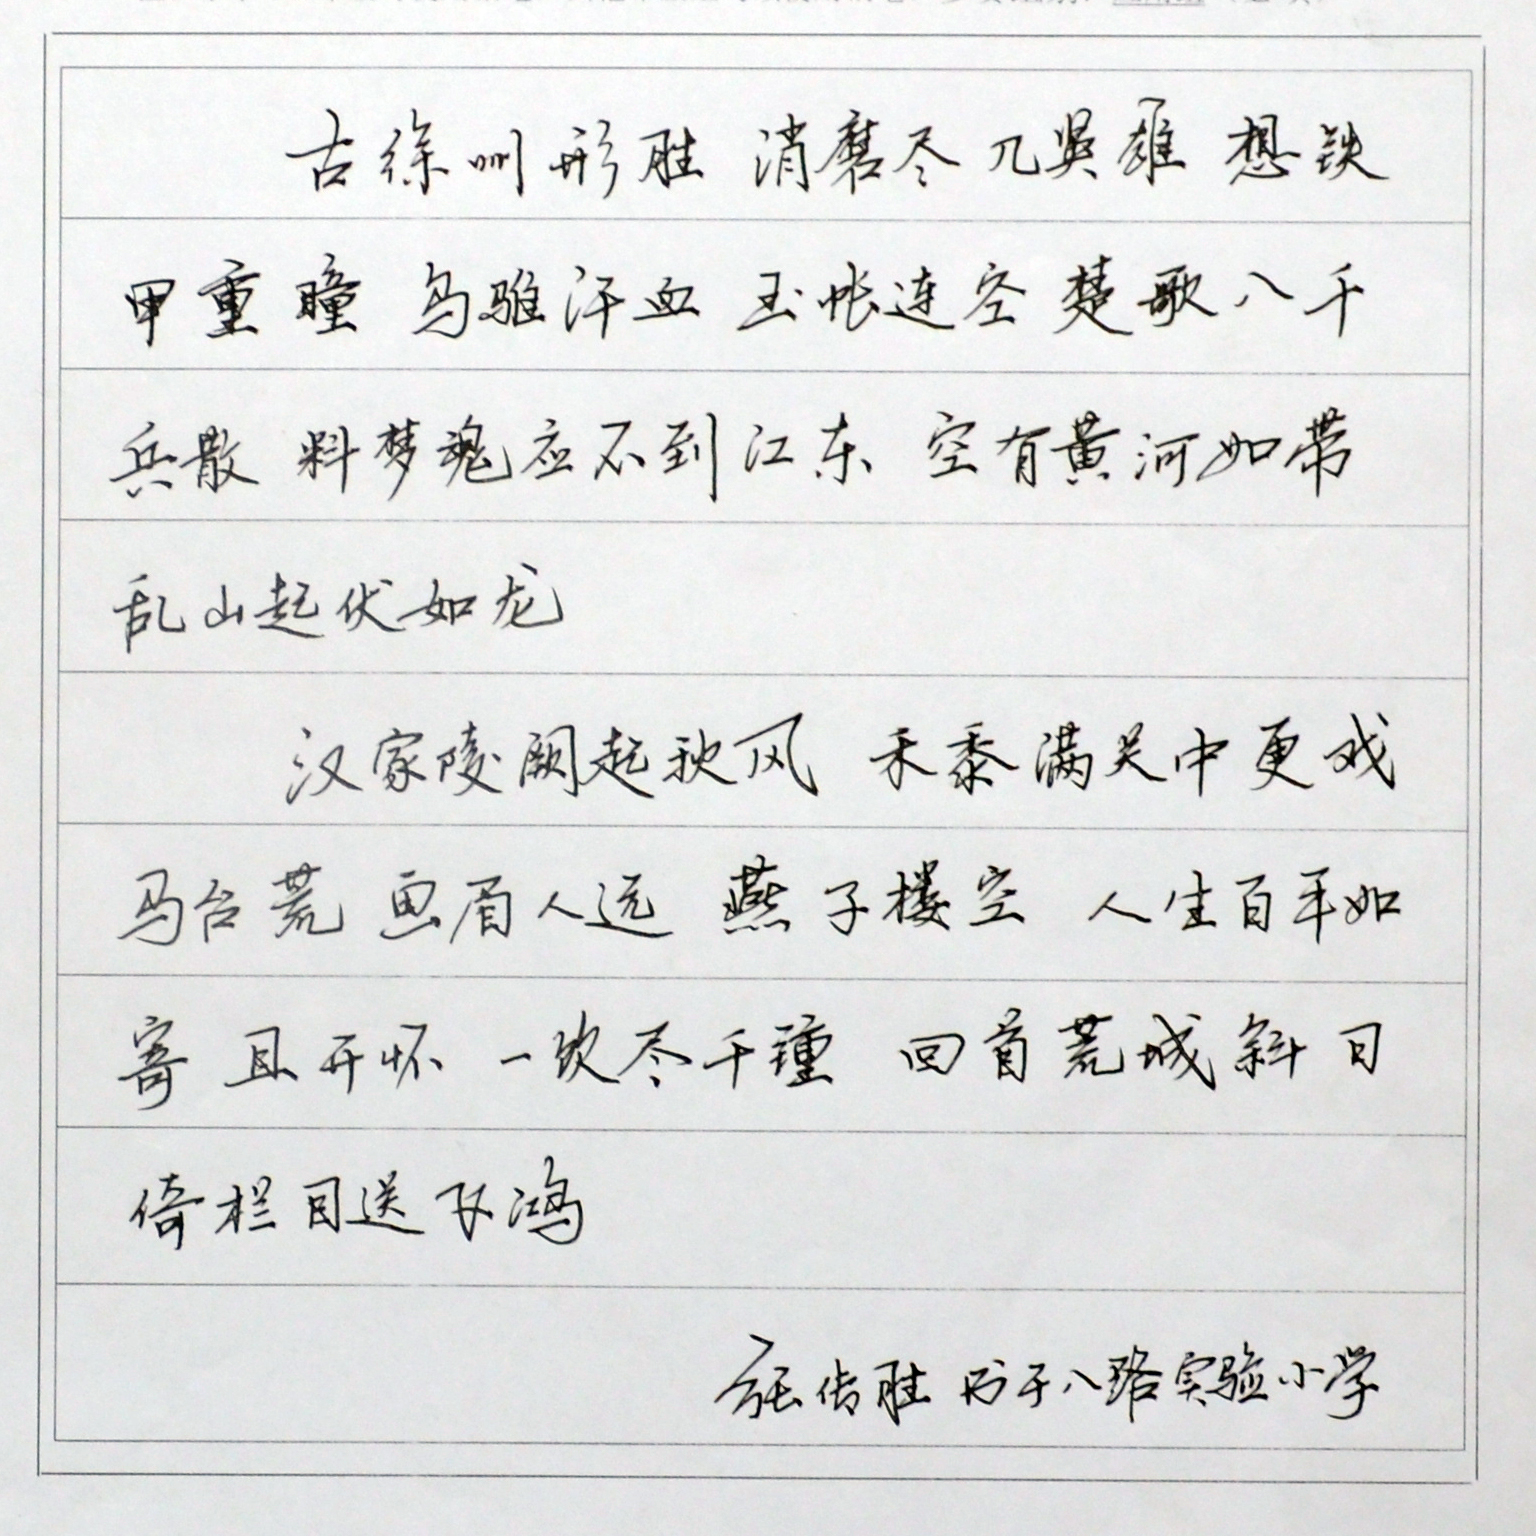 古徐州形胜 消磨尽几英雄 想铁
甲重瞳 乌骓汗血 玉帐连空 楚歌八千
兵散 料梦魂应不到江东 空有黄河如带
乱山起伏如龙
汉家陵阙起秋风 禾黍满关中 更戏
马台荒 画眉人远 燕子楼空 人生百年如
寄 且开怀 一饮尽千锺 回首荒城斜日
倚栏目送飞鸿
张传胜 书于八路实验小学